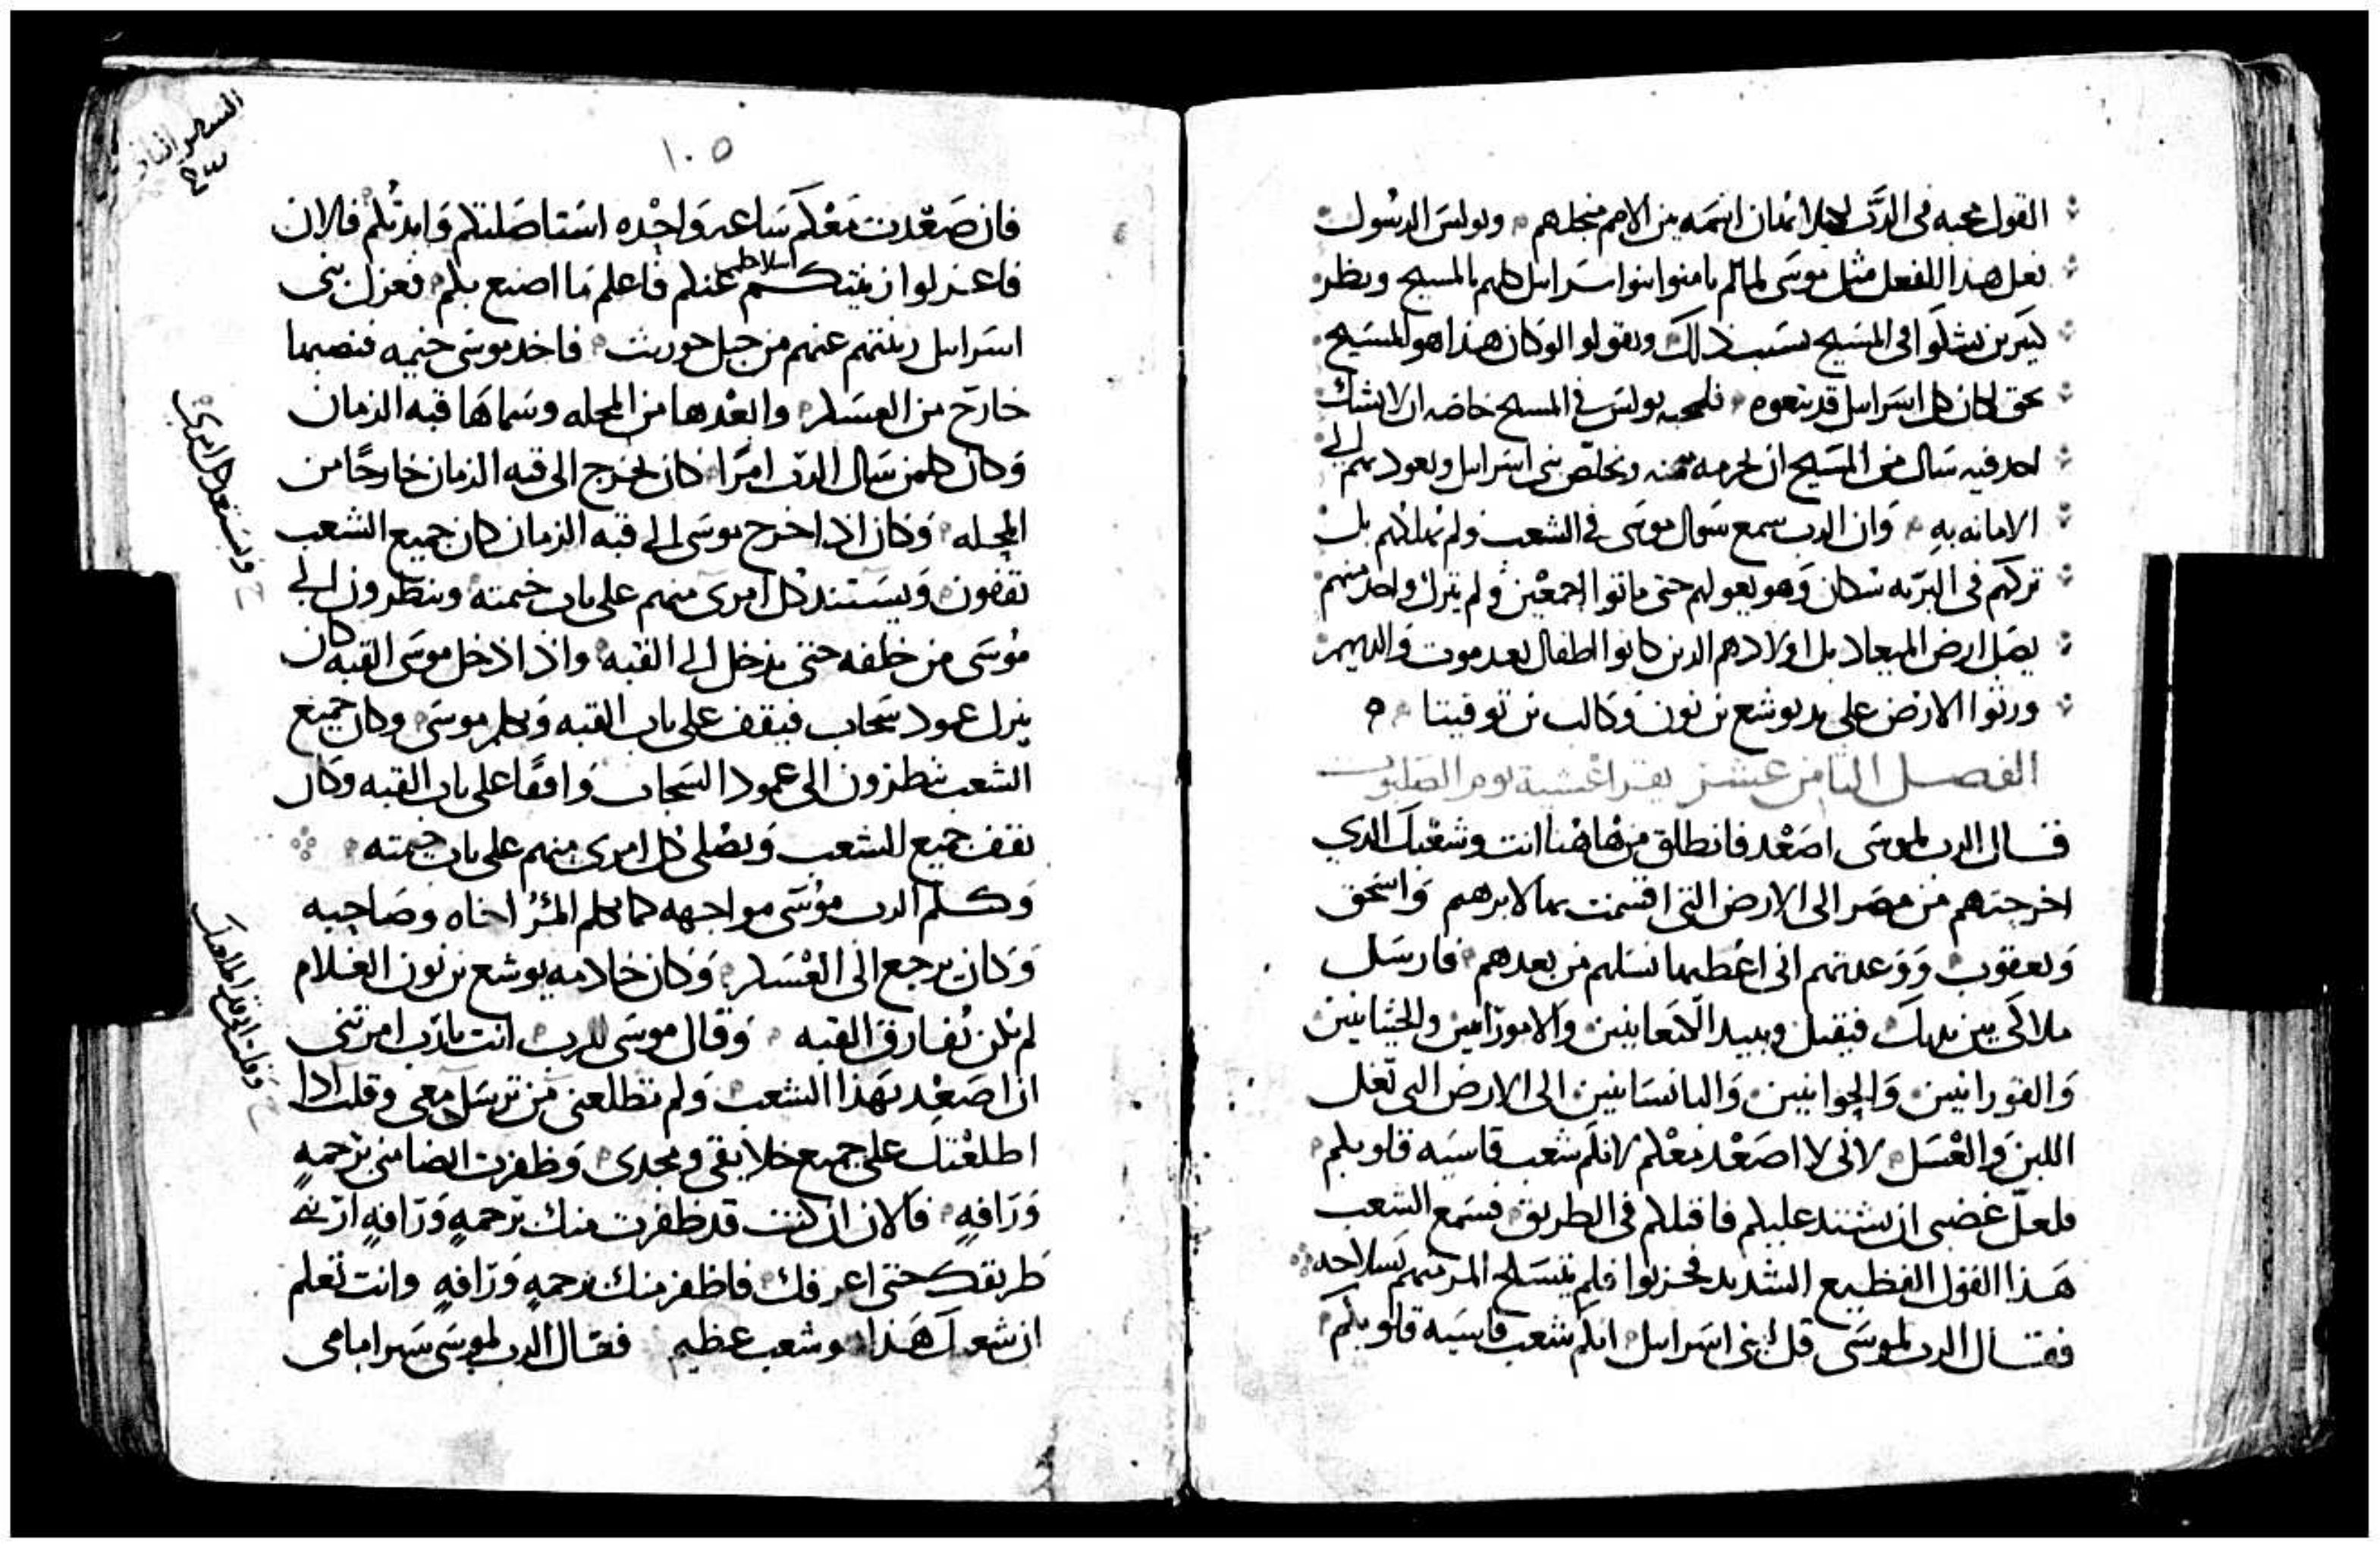 القول محبه في الرب لهلا انمان اسمه من الامم منجلهم وبولس الرسول
فعل هذا الفعل مثل موسى لما لم يامنوا بنوا اسراىل كلهم بالمسيح ونظر
كثيرين يشكوا في المسيح بسبب ذلك ويقولوا لو كان هذا هو المسيح
بحق لكان كل اسراىل قد تبعوه فلمحبه بولس في المسيح خاصه ان لا يشك
احد فيه سال من المسيح ان يحرمه منه ويخلص بني اسراىل ويعود بهم الى
الامانه به وان الرب سمع سوال موسى في الشعب ولم يهلكهم بل
تركهم في البريه سكان وهو يعولهم حتى ماتوا اجمعين ولم يترك واحد منهم
يصل ارض الميعاد بل اولادهم الدين كانوا اطفال بعد موت والديهم
ورثوا الارض على يد يوشع بن نون وكالب بن يوفينا
الفصل الثامن عشر يقرا عشية يوم الصلبوت
قال الرب لموسى اصعد فانطلق من هاهنا انت وشعبك الدي
اخرجتهم من مصر الى الارض التي اقسمت بها لابرهيم واسحق
ويعقوب ووعدتهم اني اعطيها نسلهم من بعدهم فارسل
ملاكي بين يديك فيقبل ويبيد الكنعانيين والاموراىين والحيثانيين
والفورانيين والحوانيين واليابسانيين الى الارض التي تغل
اللبن والعسل لاني لا اصعد معكم لانكم شعب قاسيه قلوبكم
فلعل غضبي ان يشتد عليكم فاقتلكم في الطريق فسمع الشعب
هذا القول الفظيع الشديد فحزنوا فلم يتسلح المر منهم بسلاحه
فقال الرب لموسى قل لبني اسراىل انكم شعب قاسيه قلوبكم
السفر الثاني
١٠٥
فان صعدت معكم ساعه واحده استاصلتكم وابدتكم فالان
فاعزلوا زينتكم اسلاحكم عنكم فاعلم ما اصنع بكم فعزل بني
اسراىل زينتهم عنهم من جبل حوريث فاخد موسى خيمه فنصبها
خارج من العسكر وابعدها من المحله وسماها قبه الزمان
وكان كلمن سال الرب امرا كان يخرج الى قبه الزمان خارجا من
المحله وكان ادا خرج موسى الى قبه الزمان كان جميع الشعب
يقفون ويستند كل امرى منهم على باب خيمته وينظرون الى
موسى من خلفه حتى يدخل الى القبه واذا دخل موسى القبه كان
ينزل عمود سحاب فيقف على باب القبه ويكلم موسى وكان جميع
الشعب ينظرون الى عمود السحاب واقفا على باب القبه وكان
يقف جميع الشعب ويصلي كل امرى منهم على باب خيمته
وكلم الرب موسى مواجهه كما يكلم المرء اخاه وصاحبه
وكان يرجع الى العسكر وكان خادمه يوشع بن نون الغلام
لم يكن يفارق القبه وقال موسى للرب انت يا رب امرتني
ان اصعد بهذا الشعب ولم تطلعني من ترسل معي وقلت ادا
اطلعتك على جميع خلايقي ومجدى وظفرت ايضا مني برحمه
ورافه فالان ان كنت قد ظفرت منك برحمه ورافه ارني
طريقك حتى اعرفك فاظفر منك برحمه ورافه وانت تعلم
ان شعبك هذا وشعب عظيم فقال الرب لموسى سر امامي
ويستعد كل امرى